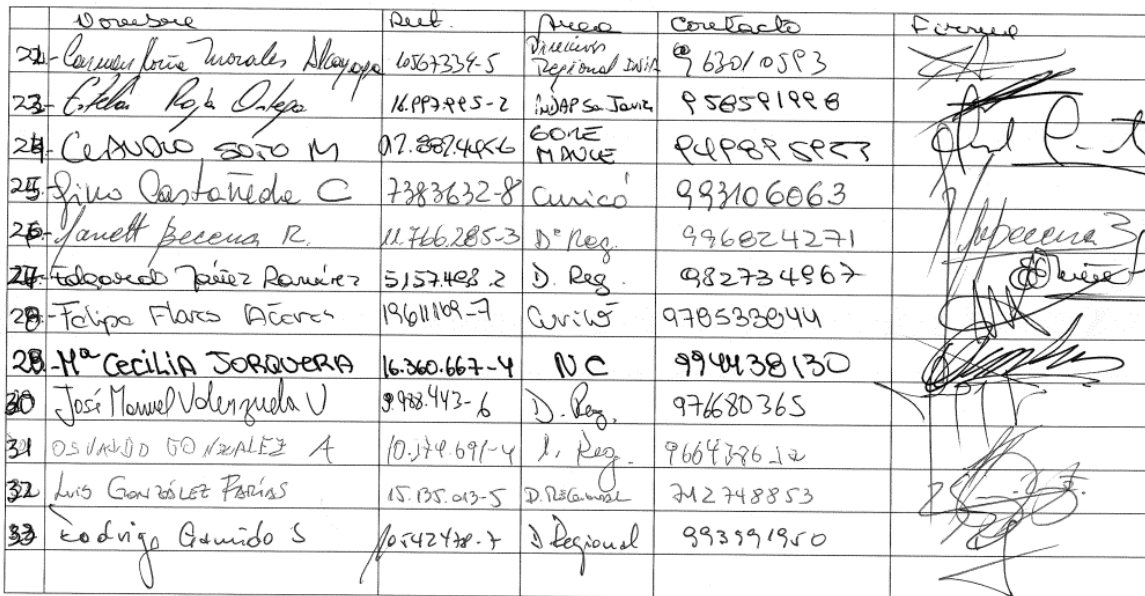 Nombre Rut. Area Contacto Firma
22- Carmen Gloria Morales Alcayaga 10567334-5 Direccion Regional INIA 963010593
23- Estela Rojas Ortega 16.997.995-2 INDAP Sn Javier 958591998
24- CLAUDIO SOTO M GORE MAULE
25- Gino Castañeda C 7383632-8 Curicó 993106063
26- Janett Becerra R. 11.766.285-3 Dº Reg. 996824271
27- Edgardo Yáñez Ramírez 5,157.498.2 D. Reg. 982734967
28- Felipe Flores 19611169-7 Curicó 978533844
29- Mª Cecilia JORQUERA 16.360.667-4 NC 994438130
30 José Manuel Valenzuela V 9.988.443-6 D. Reg. 976680365
31 OSVALDO GONZALEZ A 10.374.691-4 D. Reg.
32 Luis GONZÁLEZ FARÍAS 15.135.013-5 D. REGIONAL 712748853
33 Rodrigo Garrido S 10542478-7 D Regional 993991950